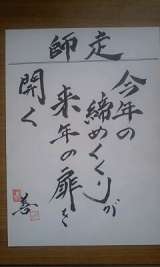 師走
今年の
締めくくりが
来年の扉を
開く